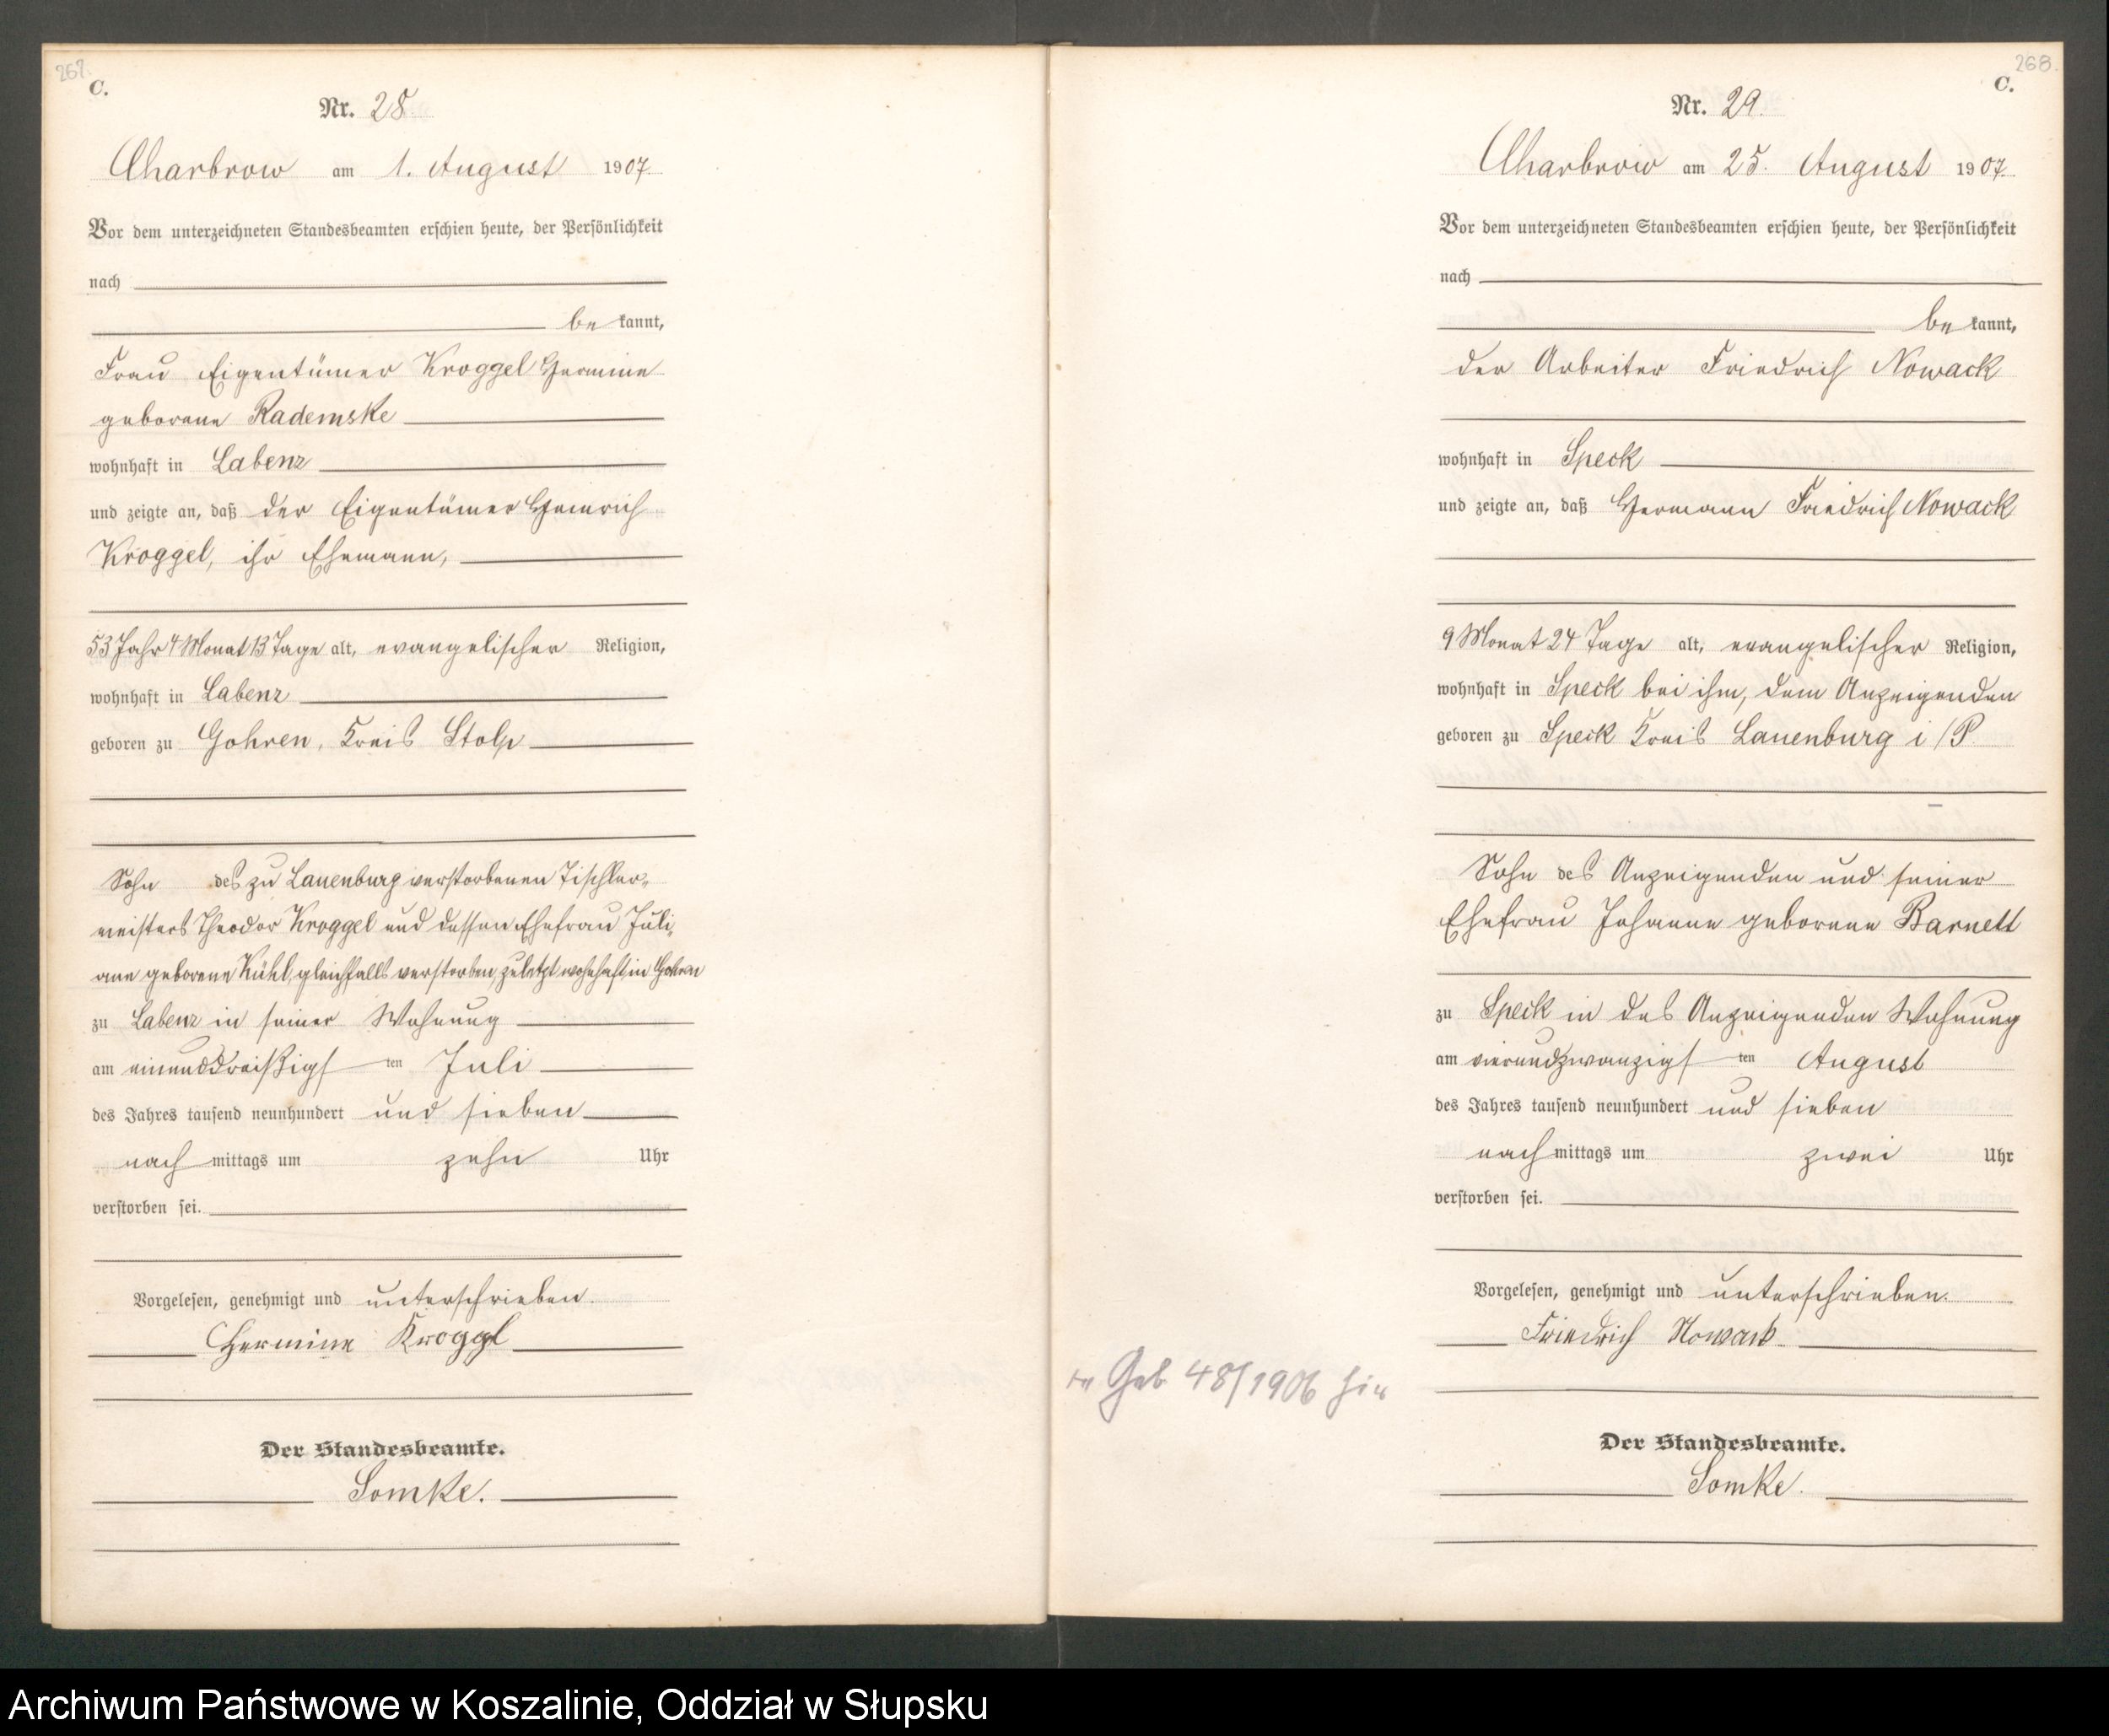 267.
C.
Nr. 28.
Charbrow am 1. August 1907.
Vor dem unterzeichneten Standesbeamten erschien heute, der Persönlichkeit
nach
be kannt,
Frau Eigentümer Kroggel Hermine
geborene Rademske
wohnhaft in Labenz
und zeigte an, daß der Eigentümer Heinrich
Kroggel, ihr Ehemann,
53 Jahr 4 Monat 13 Tage alt, evangelischer Religion,
wohnhaft in Labenz
geboren zu Gohren, Kreis Stolp
Sohn des zu Lauenburg verstorbenen Tischler-
meisters Theodor Kroggel und dessen Ehefrau Juli-
ane geborene Kühl, gleichfalls verstorben, zuletzt wohnhaft in Gohren
zu Labenz in seiner Wohnung
am einunddreißigs ten Juli
des Jahres tausend neunhundert und sieben
nach mittags um zehn Uhr
verstorben sei.
Vorgelesen, genehmigt und unterschrieben.
Hermine Kroggl
Der Standesbeamte.
Somke.
268.
C.
Nr. 29.
Charbrow am 25. August 1907.
Vor dem unterzeichneten Standesbeamten erschien heute, der Persönlichkeit
nach
be kannt,
der Arbeiter Friedrich Nowack
wohnhaft in Speck
und zeigte an, daß Hermann Friedrich Nowack
9 Monat 24 Tage alt, evangelischer Religion,
wohnhaft in Speck bei ihm, dem Anzeigenden
geboren zu Speck Kreis Lauenburg i/P
Sohn des Anzeigenden und seiner
Ehefrau Johanne geborene Barnett
zu Speck in des Anzeigenden Wohnung
am vierundzwanzigs ten August
des Jahres tausend neunhundert und sieben
nach mittags um zwei Uhr
verstorben sei.
Vorgelesen, genehmigt und unterschrieben.
Friedrich Nowack
Geb 48/1906 hier
Der Standesbeamte.
Somke.
Archiwum Państwowe w Koszalinie, Oddział w Słupsku